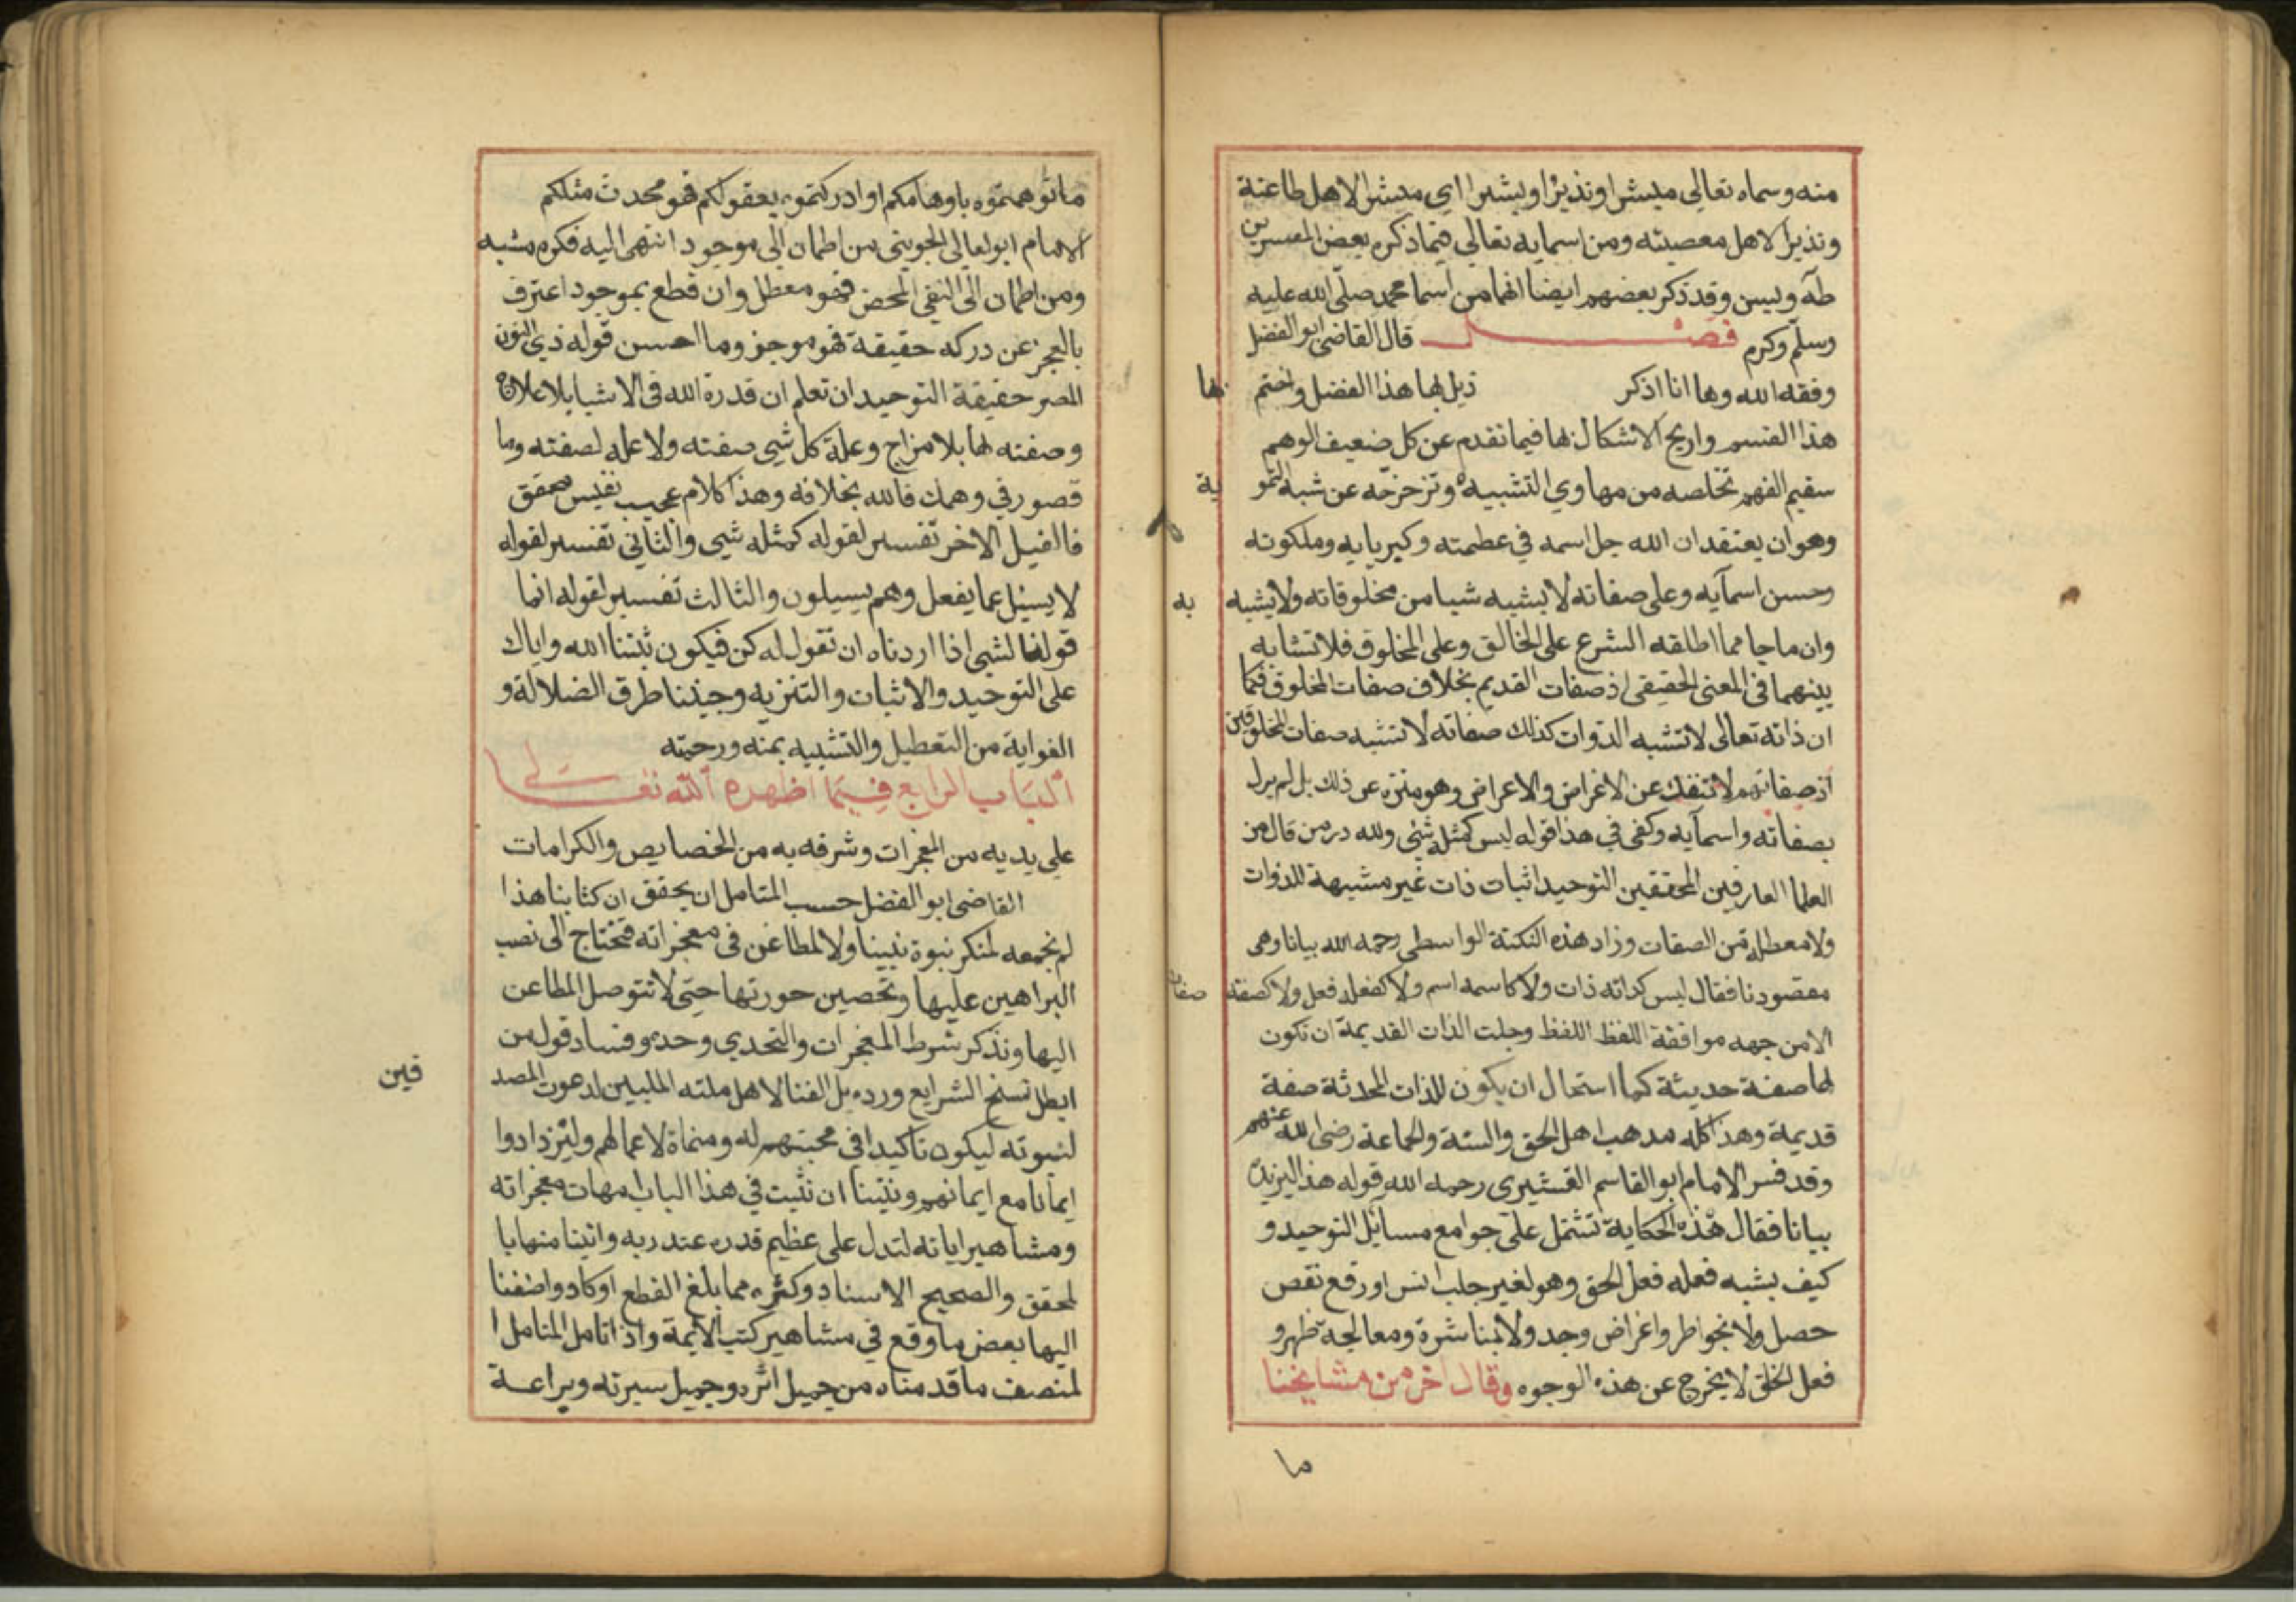 منه وسماه تعالى مبشرا ونذيرا وبشيرا اي مبشرا لاهل طاعته
ونذيرا لاهل معصيته ومن اسمايه تعالى فيما ذكره بعض المفسرين
طه ويسن وقد ذكر بعضهم ايضا انهما من اسما محمد صلى الله عليه
وسلم وكرم فصل قال القاضي ابو الفضل
وفقه الله وها انا اذكر ذيل لها هذا الفضل واختم بها
هذا القسم واريح الاشكال بها فيما تقدم عن كل ضعيف الوهم
سقيم الفهم تخلصه من مهاوي التشبيه وتزحزحه عن شبه التمو ية
وهو ان يعتقد ان الله جل اسمه في عظمته وكبريايه وملكوته
وحسن اسمآيه وعلى صفاته لا يشبه شيا من مخلوقاته ولا يشبه به
وان ما جا مما اطلقه الشرع على الخالق وعلى المخلوق فلا تشابه
بينهما في المعنى الحقيقى اذ صفات القديم بخلاف صفات المخلوق فكما
ان ذاته تعالى لا تشبه الذوات كذلك صفاته لا تشبه صفات المخلوقين
اذ صفاتهم لا تنفك عن الاغراض والاعراض وهو منزه عن ذلك بل لم يزل
بصفاته واسمآيه وكفى في هذا قوله ليس كمثله شئ ولله در من قال من
العلما العارفين المحققين التوحيد اثبات ذات غير مشبهة للذوات
ولا معطلة من الصفات وزاد هذه النكتة الواسطى رحمه الله بيانا وهى
مقصودنا فقال ليس كذاته ذات ولا كاسمه اسم ولا كفعله فعل ولا كصفته صفات
الامن جهه موافقة اللفظ اللفظ وجلت الذات القديمة ان تكون
لها صفة حديثة كما استحال ان يكون للذات المحدثة صفة
قديمة وهذا كله مذهب اهل الحق والسنة والجماعة رضى الله عنهم
وقد فسر الامام ابو القاسم القشيرى رحمه الله قوله هذا ليزيده
بيانا فقال هذه الحكاية تشتمل على جوامع مسايل التوحيد و
كيف يشبه فعله فعل الحق وهو لغير جلب انس او رفع نقص
حصل ولا بخواطر واغراض وجد ولا بمباشرة ومعالجة ظهر و
فعل الخلق لا يخرج عن هذه الوجوه وقال اخر من مشايخنا
ما
ما توهمتموه باوهامكم او ادركتموه بعقولكم فهو محدث مثلكم
الامام ابو لعالى الجوينى من اطمان الى موجود انتهى اليه فكره مشبه
ومن اطمان الى النفى المحض فهو معطل وان قطع بموجود اعترف
بالعجز عن دركه حقيقة فهو موجز وما احسن قوله ذي النون
المصر حقيقة التوحيد ان تعلم ان قدرة الله في الاشيا بلا علاج
وصفته لها بلا مزاج وعلة كل شي صفته ولا علة لصفته وما
قصور في وهمك فالله بخلافه وهذا كلام عجيب نفيس محقق
فالفيل الاخر تفسير لقوله كمثله شي والثاني تفسير لقوله
لا يسيل عما يفعل وهم يسيلون والثالث تفسير لقوله انما
قولنا لشي اذا اردناه ان تقول له كن فيكون ثبتنا الله واياك
على التوحيد والاثبات والتنزيه وجنبنا طرق الضلالة و
الغواية من التعطيل والتشبيه بمنه ورحمته
الباب الرابع فيما اظهره الله تعالى
علي يديه من المعجزات وشرفه به من الخصايص والكرامات
القاضي ابو الفضل حسب المتامل ان يحقق ان كتابنا هذا
لم نجمعه لمنكر نبوة نبينا ولا لمطاعن في معجزاته فتحتاج الى نصب
البراهين عليها وتحصين حوزتها حتى لا تتوصل المطاعن
اليها ونذكر شرط المعجزات والتحدي وحده وفساد قول من
ابطل نسخ الشرايع ورده بل الفنا لاهل ملته الملبين لدعوت المصد قين
لنبوته ليكون تاكيدا في محبتهم له ومنماة لاعمالهم وليزدادوا
ايمانا مع ايمانهم ونيتنا ان نثبت في هذا الباب امهات معجزاته
ومشاهير اياته لتدل على عظيم قدره عند ربه واتينا منها با
لمحقق والصحيح الاسناد وكثره مما بلغ القطع او كاد واضفنا
اليها بعض ما وقع في مشاهير كتب الايمة واذا تامل المتامل ا
لمنصف ما قدمناه من جميل اثره وجميل سيرته وبراعة